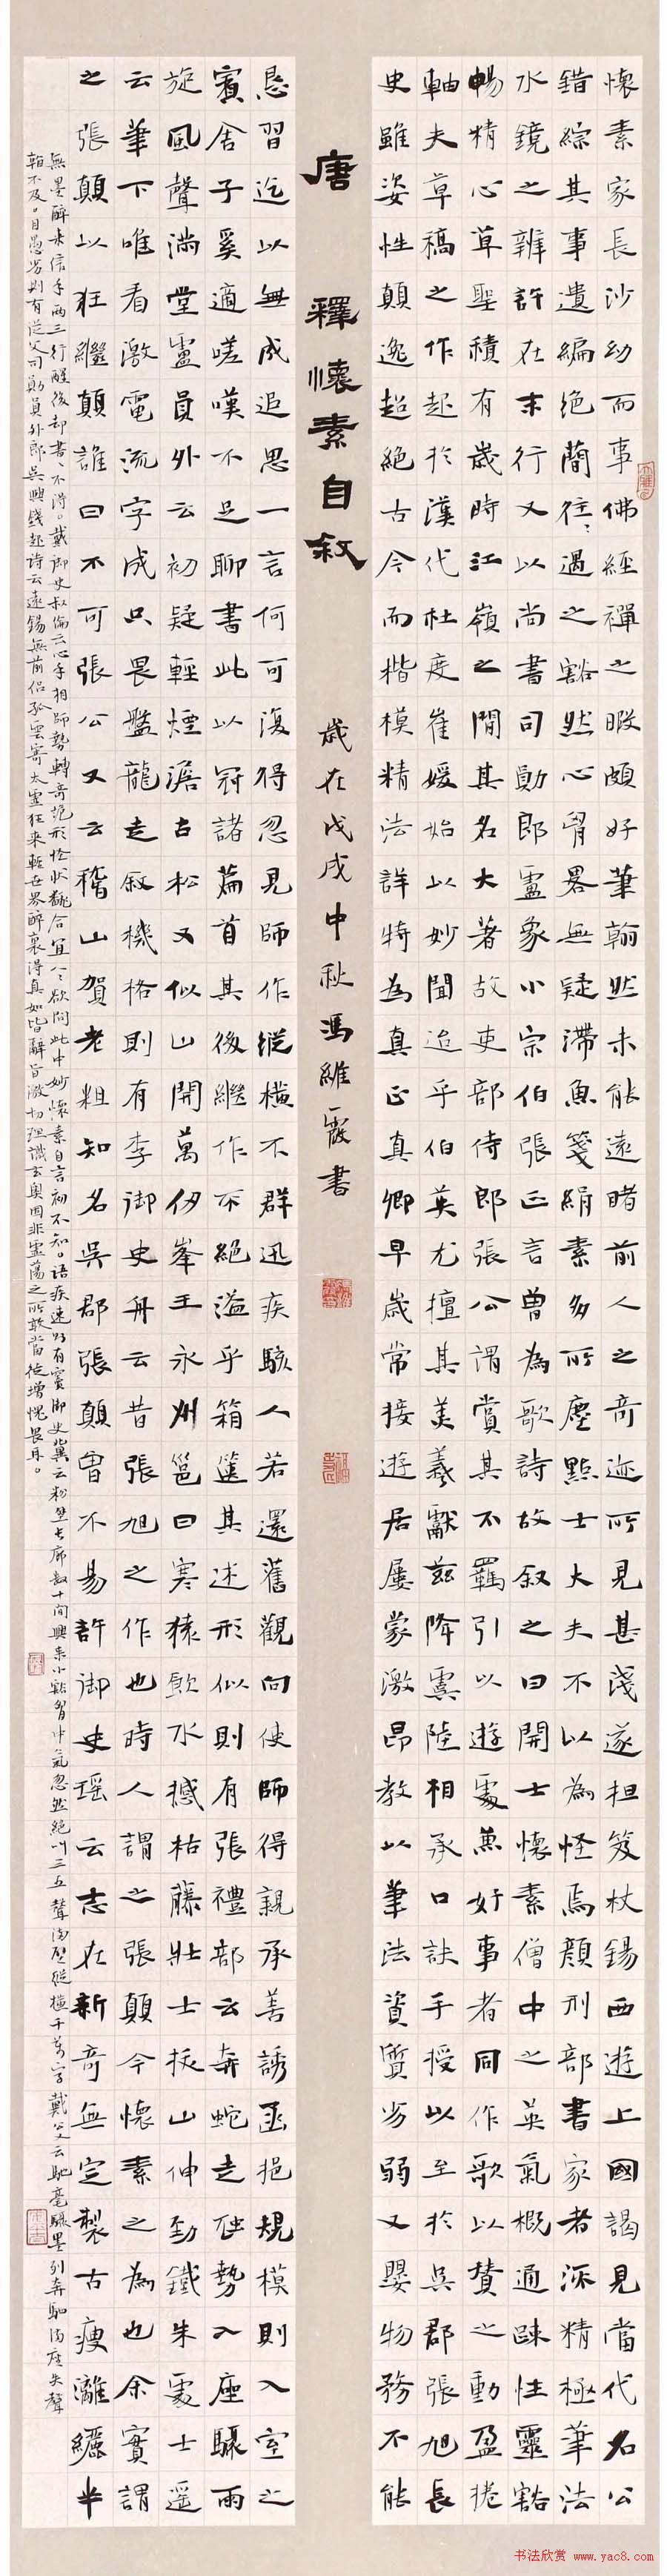 懷素家長沙幼而事佛經禪之暇頗好筆翰然未能遠睹前人之奇迹所見甚淺遂担笈杖錫西遊上國謁見當代名公
錯綜其事遺編絕蕳往〻遇之豁然心胷畧無疑滯魚箋絹素多所塵點士大夫不以為怪焉顏刑部書家者流精極筆法
水鏡之辨許在末行又以尚書司勛郎盧象小宗伯張正言曾為歌詩故敘之曰開士懷素僧中之英氣概通疎性靈豁
暢精心草聖積有歲時江嶺之間其名大著故吏部侍郎張公謂賞其不羈引以遊處兼好事者同作歌以贊之動盈捲
軸夫草稿之作起於漢代杜度崔媛始以妙聞迨乎伯英尤擅其美羲獻茲降虞陸相承口訣手授以至於吳郡張旭長
史雖姿性顛逸超絕古今而楷模精法詳特為真正真卿早歲常接遊居屢蒙激昂教以筆法資質劣弱又嬰物務不能
唐 釋懷素自敘
歲在戊戌中秋馮維霞書
恳習迄以無成追思一言何可復得忽見師作縱橫不群迅疾駭人若還舊觀向使師得親承善誘函挹規模則入室之
賓舍子奚適嗟嘆不足聊書此以冠諸篇首其後繼作不絕溢乎箱篋其述形似則有張禮部云奔蛇走虺勢入座驟雨
旋風聲滿堂盧員外云初疑輕煙澹古松又似山開萬仞峯王永州邕曰寒猿飲水撼枯藤壯士拔山伸勁鐵朱處士遥
云筆下唯看激電流字成只畏盤龍走敘機格則有李御史舟云昔張旭之作也時人謂之張顛今懷素之為也余實謂
之張顛以狂繼顛誰曰不可張公又云稽山賀老粗知名吳郡張顛曾不易許御史瑶云志在新奇無定製古瘦漓纚半
無墨醉来信手两三行醒後却書〻不得。戴御史叔倫云心手相師勢轉奇詭形怪状翻合宜人〻欲問此中妙懷素自言初不知。語疾速則有竇御史冀云粉壁長廊數十間興来小豁胷中氣忽然絕叫三五聲滿壁縱横千萬字戴公又云馳毫驟墨列奔駟滿座失聲
不及。目愚劣則有從父司勛員外郎吳興錢起詩云遠錫無前侶孤雲寄太虛狂来輕世界醉裏得真如皆辭旨激切理識玄奧固非虛蕩之所敢當徒增愧畏耳。
书法欣赏 www.yac8.com